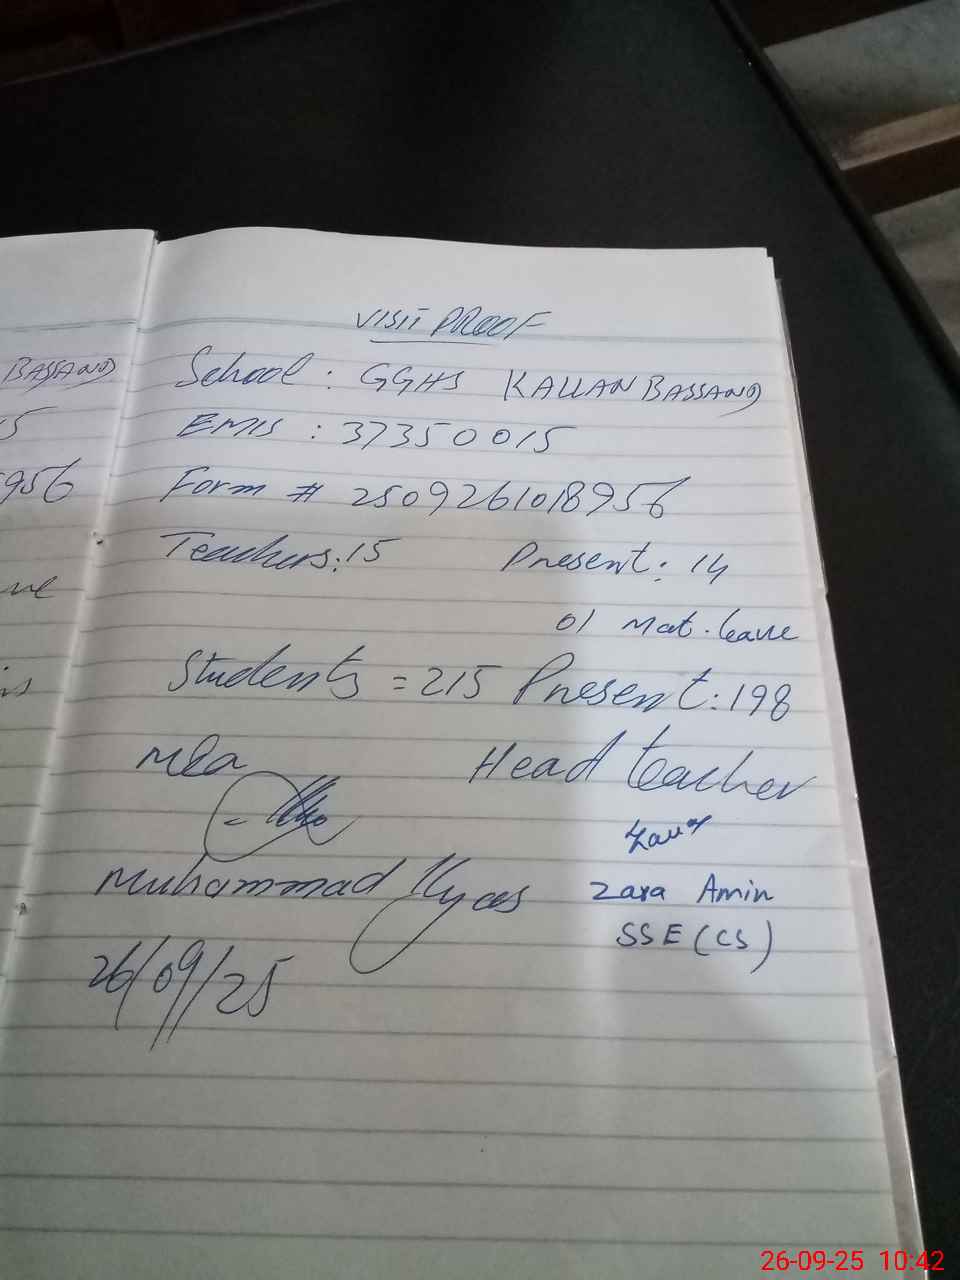 BASSAND
15
956
VISIT PROOF
School : GGHS KALLAN BASSAND
EMIS : 37350015
Form # 2509261018956
Teachers: 15 Present: 14
01 Mat. leave
Students = 215 Present: 198
Mea Head teacher
Muhammad Ilyas Zara Amin
SSE (CS)
26/09/25
26-09-25 10:42